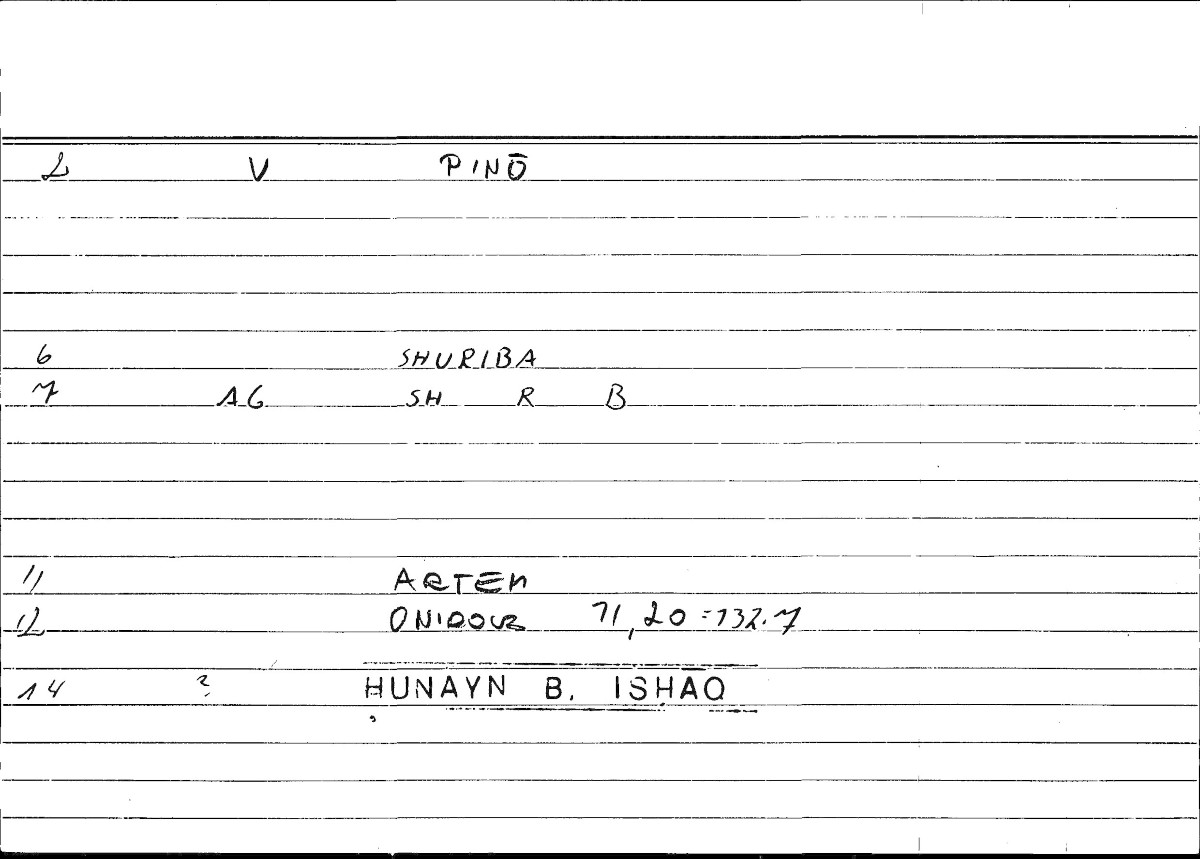 2 V PINŌ
6 SHURIBA
7 AG SH R B
11 ARTEM
12 ONIDOUS 71,20 = 132.7
14 ? ḤUNAYN B. ISḤĀQ